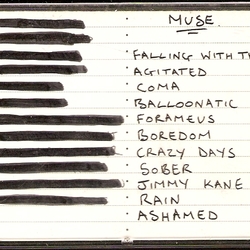 MUSE.
· FALLING WITH
· AGITATED
· COMA
· BALLOONATIC
· FORAMEUS
· BOREDOM
· CRAZY DAYS
· SOBER
· JIMMY KANE
· RAIN
· ASHAMED